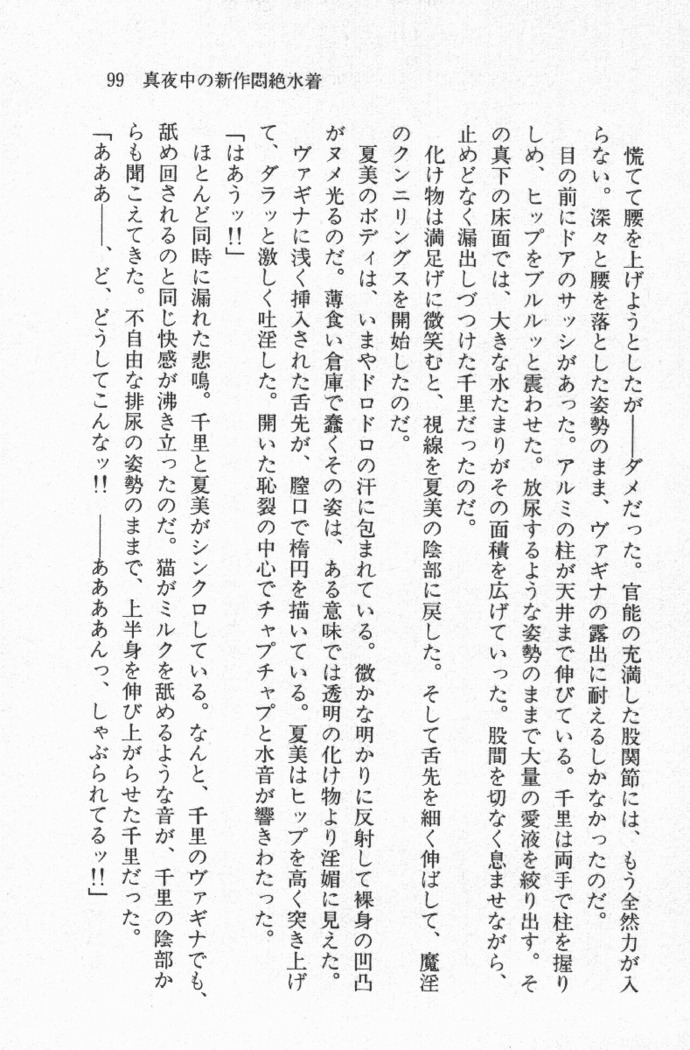 99 真夜中の新作悶絶水着
慌てて腰を上げようとしたが――ダメだった。官能の充満した股関節には、もう全然力が入
らない。深々と腰を落とした姿勢のまま、ヴァギナの露出に耐えるしかなかったのだ。
目の前にドアのサッシがあった。アルミの柱が天井まで伸びている。千里は両手で柱を握り
しめ、ヒップをブルルッと震わせた。放尿するような姿勢のままで大量の愛液を絞り出す。そ
の真下の床面では、大きな水たまりがその面積を広げていった。股間を切なく息ませながら、
止めどなく漏出しづつけた千里だったのだ。
化け物は満足げに微笑むと、視線を夏美の陰部に戻した。そして舌先を細く伸ばして、魔淫
のクンニリングスを開始したのだ。
夏美のボディは、いまやドロドロの汗に包まれている。微かな明かりに反射して裸身の凹凸
がヌメ光るのだ。薄食い倉庫で蠢くその姿は、ある意味では透明の化け物より淫媚に見えた。
ヴァギナに浅く挿入された舌先が、膣口で楕円を描いている。夏美はヒップを高く突き上げ
て、ダラッと激しく吐淫した。開いた恥裂の中心でチャプチャプと水音が響きわたった。
「はあうッ!!」
ほとんど同時に漏れた悲鳴。千里と夏美がシンクロしている。なんと、千里のヴァギナでも、
舐め回されるのと同じ快感が沸き立ったのだ。猫がミルクを舐めるような音が、千里の陰部か
らも聞こえてきた。不自由な排尿の姿勢のままで、上半身を伸び上がらせた千里だった。
「あああ――、ど、どうしてこんなッ!! ――ああああんっ、しゃぶられてるッ!!」